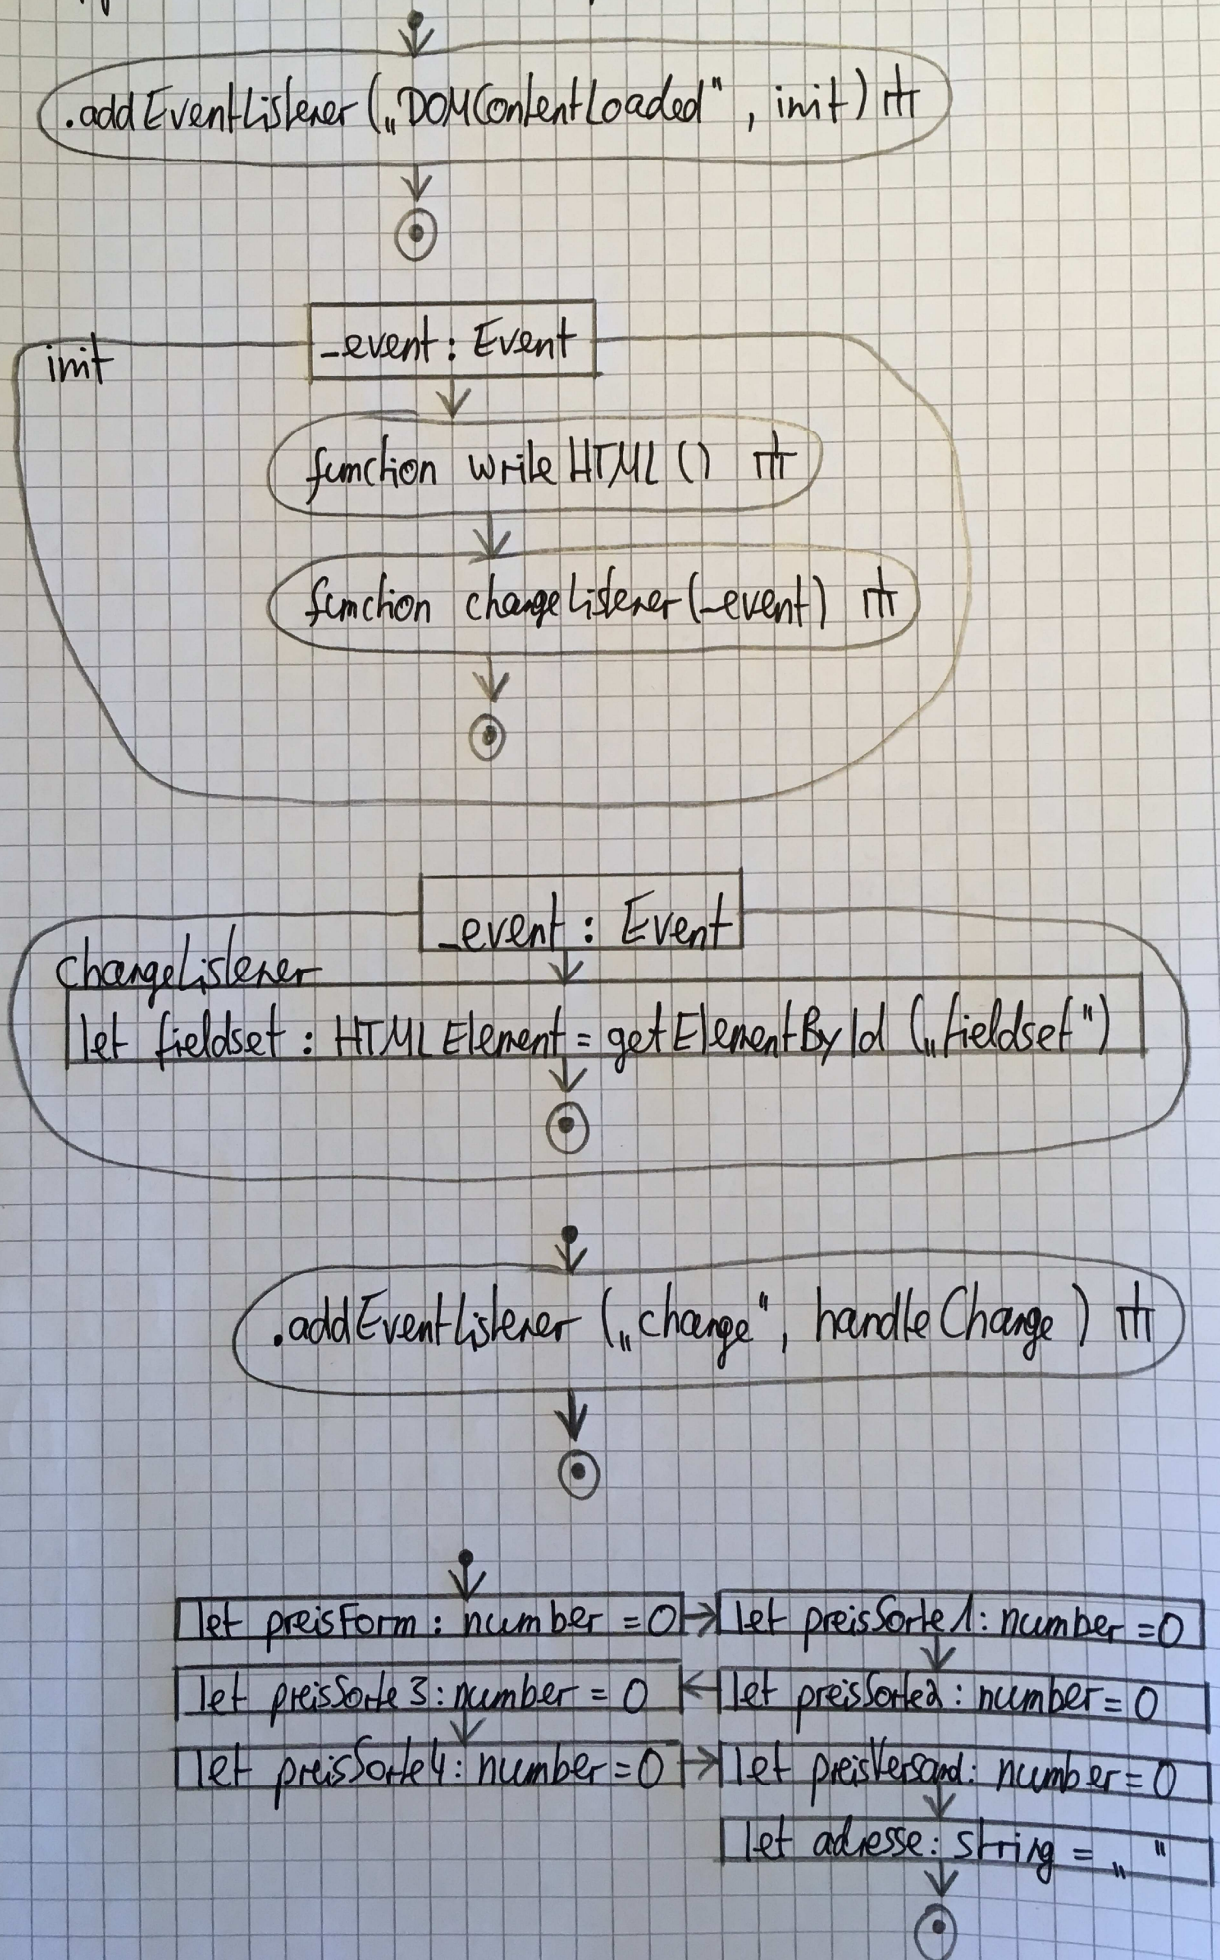 .addEventListener („DOMContentLoaded", init)
init
_event : Event
function writeHTML ()
function changeListener(_event)
_event : Event
changeListener
let fieldset : HTMLElement = getElementById („fieldset")
.addEventListener („change", handleChange )
let preisForm : number = 0
let preisSorte1 : number = 0
let preisSorte3 : number = 0
let preisSorte2 : number = 0
let preisSorte4 : number = 0
let preisVersand : number = 0
let adresse : string = „ "